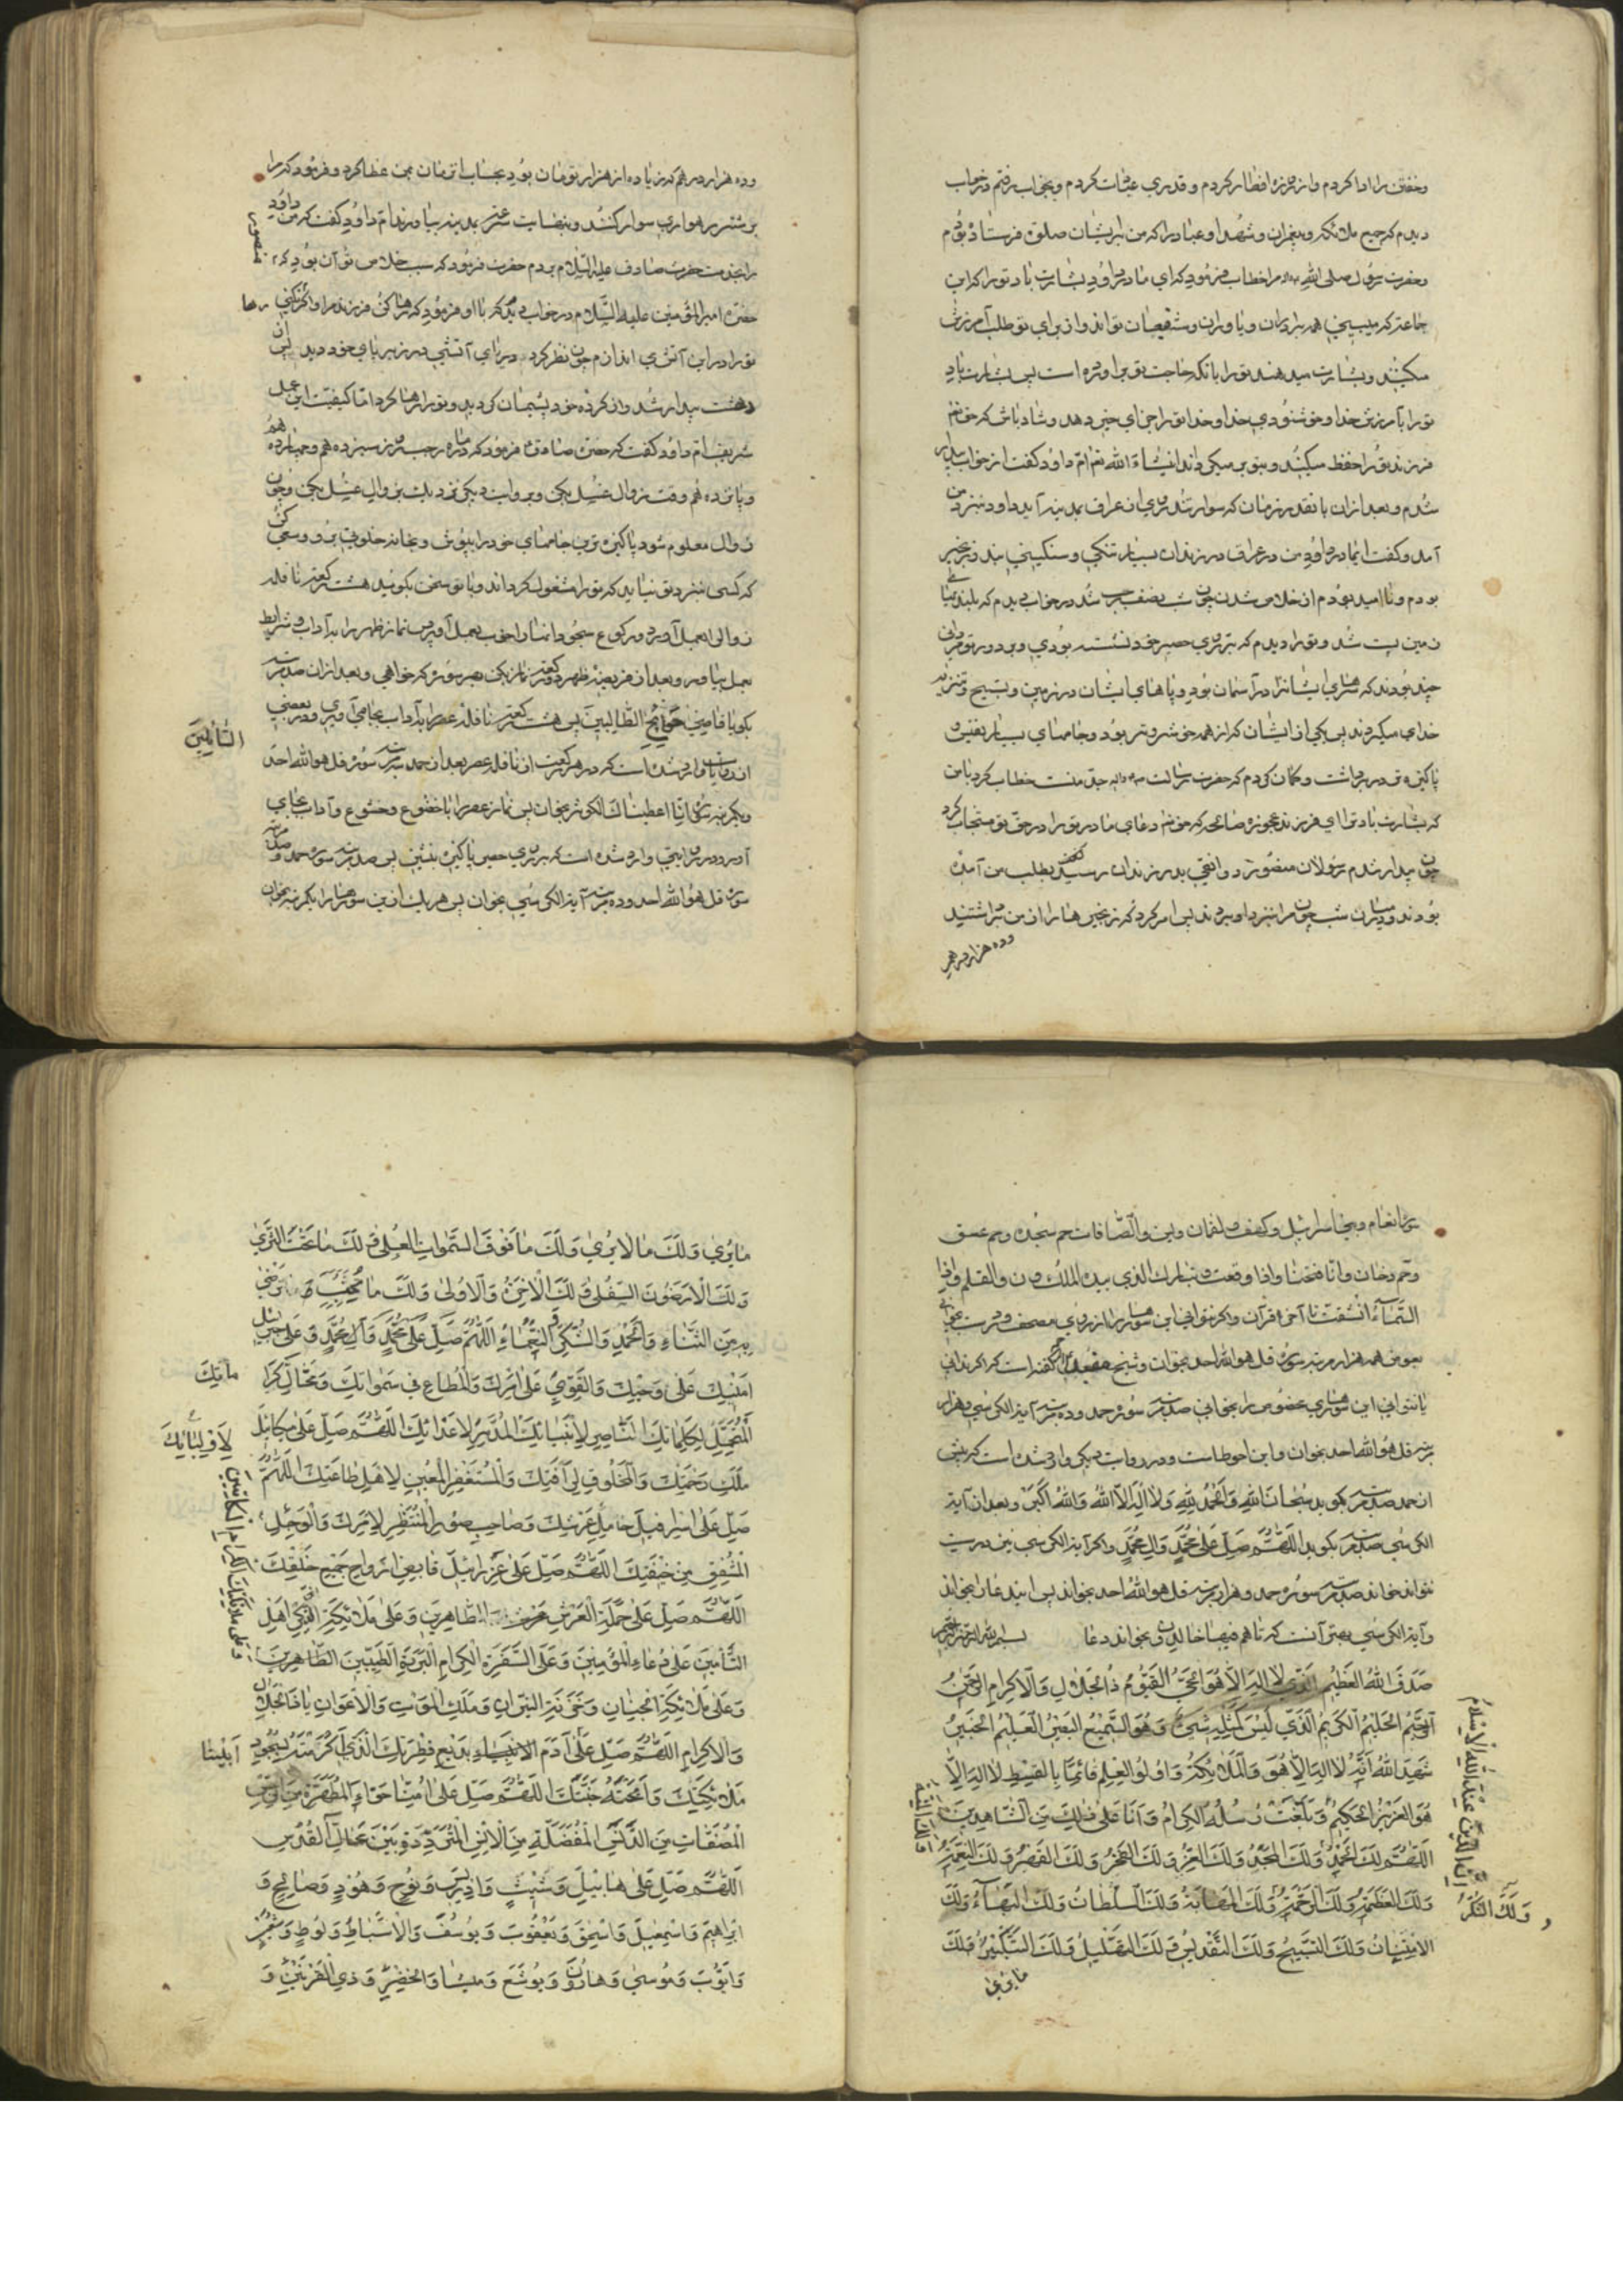 وخفتن را ادا کردم و از روزه افطار کردم و قدری عبادت کردم و بخواب رفتم در خواب
دیدم که جمیع ملائکه و پیغمبران و شهدا و عباد را که من بر ایشان صلوة فرستاده بودم
و حضرت رسول صلی الله مرا خطاب فرمود که ای مادر داود بشارت باد تو را که این
جماعتی که می بینی همه برادران و یاوران و شفیعان تو اند و از برای تو طلب آمرزش
میکنند و بشارت میدهند تو را بانکه حاجت تو براورده است پس بشارت باد
تو را بآمرزش خدا و خوشنودی خدا و خدا تو را جزای خیر دهد و شاد باش که حق تعالی
فرزند تو را حفظ میکند و بتو بر میکرداند انشاء الله تعالی ام داود گفت از خواب بیدار
شدم و بعد از ان بانقدر زمان که سوار تند روی از عراق بمدینه آید داود بنزد من
آمد و گفت ای مادر داود من در عراق در زندان بسیار تنگی و سنگینی بند و زنجیر
بودم و نا امید بودم از خلاص شدن چون شب نصف رجب شد در خواب دیدم که بلندیهای
زمین پست شد و تو را دیدم که بر روی حصیر خود نشسته بودی و بر دور تو مردانی
چند بودند که سرهای ایشان در آسمان بود و پاهای ایشان در زمین و تسبیح و تنزیه
خدای میکردند پس یکی از ایشان که از همه خوشروتر بود و جامهای بسیار نفیس
پاکیزه در بر داشت و گمان کردم که حضرت رسالت جد منست خطاب کرد با من
که بشارت باد تو را ای فرزند عجوزه صالحه که حق تعالی دعای مادر تو را در حق تو مستجاب کرد
چون بیدار شدم رسولان منصور دوانقی بدر زندان رسیدند بطلب من آمده
بودند و در میان شب مرا بنزد او بردند پس امر کرد که زنجیرها را از من برداشتند
و ده هزار درهم
و ده هزار درهم که زیاده از هزار تومان بود بحساب این زمان بمن عطا کرد و فرمود که مرا
بر شتر رهواری سوار کنند و بنهایت سرعت بمدینه بیاورند ام داود گفت که من داود
را بخدمت حضرت صادق علیه السلام بردم حضرت فرمود که سبب خلاص تو آن بود که
منصور
حضرت امیر المؤمنین علیه السلام در خواب دید که با او فرمود که رها کن فرزند مرا و اگر نکنی
رها
تو را در این آتش اندازم چون نظر کرد دریای آتشی در زیر پای خود دید پس از
دهشت بیدار شد و از کرده خود پشیمان گردید و تو را رها کرد اما کیفیت این عمل
شریف ام داود گفت که حضرت صادق فرمود که در ماه رجب روز سیزدهم و چهاردهم
و پانزدهم وقت زوال غسل بکن و بروایت دیگر نزدیک بزوال غسل بکن و چون
زوال معلوم شود پاکیزه ترین جامهای خود را بپوش و بخانه خلوتی برو و سعی کن
که کسی بنزد تو نیاید که تو را مشغول گرداند و با تو سخن بگوید هشت رکعت نافله
زوال را بعمل آورد و رکوع و سجود آنها را خوب بعمل آور پس نماز ظهر را با آداب و شرایط
بعمل بیاور و بعد از فریضه ظهر دو رکعت نماز بکن بهر سوره که خواهی و بعد از ان صد مرتبه
بگو یا قاضی حوائج الطالبین پس هشت رکعت نافله عصر را بآداب بجا می آوری و در بعضی
السائلین
از روایات وارد شده است که در هر رکعت از نافله عصر بعد از حمد سه مرتبه سوره قل هو الله احد
و یکمرتبه سوره انا اعطیناک الکوثر بخوان پس نماز عصر را با خضوع و خشوع و آداب بجای
آور و در روایتی وارد شده است که بر روی حصیر پاکیزه بنشین پس صد مرتبه سوره حمد و صد مرتبه
سوره قل هو الله احد و ده مرتبه آیة الکرسی بخوان پس هر یک از این سورها را یکمرتبه بخوان
سوره انعام و بنی اسرائیل و کهف و لقمان و یس و الصافات حم سجده و حم عسق
و حم دخان و انا فتحنا و اذا وقعت و تبارک الذی بیده الملک و ن و القلم و اذا
السماء انشقت تا آخر قرآن و اگر نتوانی این سورها را از روی مصحف درست بخوانی
بعوض همه هزار مرتبه سوره قل هو الله احد بخوان و شیخ مفید گفته است که اگر ندانی
یا نتوانی این سورها را بعوض بخوانی صد مرتبه سوره حمد و ده مرتبه آیة الکرسی و هزار
مرتبه قل هو الله احد بخوان و این احوط است و در روایت دیگر وارد شده است که پیش
از حمد صد مرتبه بگوید سُبْحانَ اللهِ وَالْحَمْدُ لِلّهِ وَلا اِلهَ اِلاَّ اللهُ وَاللهُ اَکْبَرُ و بعد از آیة
الکرسی صد مرتبه بگوید اللّهُمَّ صَلِّ عَلی مُحَمَّدٍ وَالِ مُحَمَّدٍ و اگر آیة الکرسی نیز درست
نتواند خواند صد مرتبه سوره حمد و هزار مرتبه قل هو الله احد بخواند پس این دعا را بخواند
و آیة الکرسی بهتر آنست که تا هم فیها خالدون بخواند دعا بسم الله الرحمن الرحیم
صَدَقَ اللهُ الْعَظیمُ الَّذی لا اِلهَ اِلاّ هُوَ الْحَیُّ الْقَیُّومُ ذُو الْجَلالِ وَالْاِکْرامِ الرَّحْمنُ
الرَّحیمُ الْحَلیمُ الْکَریمُ الَّذی لَیْسَ کَمِثْلِهِ شَیْءٌ وَهُوَ السَّمیعُ الْبَصیرُ الْعَلیمُ الْخَبیرُ
شَهِدَ اللهُ اَنَّهُ لا اِلهَ اِلاّ هُوَ وَالْمَلائِکَةُ وَاُولُوا الْعِلْمِ قائِماً بِالْقِسْطِ لا اِلهَ اِلاّ
هُوَ الْعَزیزُ الْحَکیمُ وَبَلَّغَتْ رُسُلُهُ الْکِرامُ وَاَنَا عَلی ذلِکَ مِنَ الشّاهِدینَ
اِنَّ الدّینَ عِنْدَ اللهِ الْاِسْلامُ
اللّهُمَّ لَکَ الْحَمْدُ وَلَکَ الْمَجْدُ وَلَکَ الْعِزُّ وَلَکَ الْفَخْرُ وَلَکَ الْقَهْرُ وَلَکَ النِّعْمَةُ
وَلَکَ الْعَظَمَةُ وَلَکَ الرَّحْمَةُ وَلَکَ الْمَهابَةُ وَلَکَ السُّلْطانُ وَلَکَ الْبَهاءُ وَلَکَ
وَلَکَ الشُّکْرُ
الْاِمْتِنانُ وَلَکَ التَّسْبیحُ وَلَکَ التَّقْدیسُ وَلَکَ التَّهْلیلُ وَلَکَ التَّکْبیرُ وَلَکَ
ما یُری
ما یُری وَلَکَ ما لا یُری وَلَکَ ما فَوْقَ السَّمواتِ الْعُلی وَلَکَ ما تَحْتَ الثَّری
وَلَکَ الْاَرَضُونَ السُّفْلی وَلَکَ الْاخِرَةُ وَالْاُولی وَلَکَ ما تُحِبُّ وَتَرْضی
بِهِ مِنَ الثَّناءِ وَالْحَمْدِ وَالشُّکْرِ وَالنَّعْماءِ اللّهُمَّ صَلِّ عَلی مُحَمَّدٍ وَآلِ مُحَمَّدٍ وَعَلی جَبْرَئیلَ
اَمینِکَ عَلی وَحْیِکَ وَالْقَوِیِّ عَلی اَمْرِکَ وَالْمُطاعِ فی سَمواتِکَ وَمَحالِّ کَرا
ماتِکَ
الْمُتَحَمِّلِ لِکَلِماتِکَ النّاصِرِ لِاَنْبِیائِکَ الْمُدَمِّرِ لِاَعْدائِکَ اللّهُمَّ صَلِّ عَلی میکائیلَ
لِاَوْلِیائِکَ
مَلَکِ رَحْمَتِکَ وَالْمَخْلُوقِ لِرَأْفَتِکَ وَالْمُسْتَغْفِرِ الْمُعینِ لِاَهْلِ طاعَتِکَ اللّهُمَّ
صَلِّ عَلی اِسْرافیلَ حامِلِ عَرْشِکَ وَصاحِبِ الصُّورِ الْمُنْتَظِرِ لِاَمْرِکَ وَالْوَجِلِ
الْمُشْفِقِ مِنْ خیفَتِکَ اللّهُمَّ صَلِّ عَلی عَزْرائیلَ قابِضِ اَرْواحِ جَمیعِ خَلْقِکَ
وَعَلی مَلائِکَتِکَ الْکِرامِ الْکاتِبینَ
اللّهُمَّ صَلِّ عَلی حَمَلَةِ الْعَرْشِ الطّاهِرینَ وَعَلی مَلائِکَةِ الذِّکْرِ اَهْلِ
التَّأْمینِ عَلی دُعاءِ الْمُؤْمِنینَ وَعَلَی السَّفَرَةِ الْکِرامِ الْبَرَرَةِ الطَّیِّبینَ الطّاهِرینَ
وَعَلی مَلائِکَةِ الْجِنانِ وَخَزَنَةِ النّیرانِ وَمَلَکِ الْمَوْتِ وَالْاَعْوانِ یا ذَا الْجَلالِ
وَالْاِکْرامِ اللّهُمَّ صَلِّ عَلی آدَمَ بَدیعِ فِطْرَتِکَ الَّذی اَکْرَمْتَهُ بِسُجُودِ
اَبینا
مَلائِکَتِکَ وَاَبَحْتَهُ جَنَّتَکَ اللّهُمَّ صَلِّ عَلی اُمِّنا حَوّاءَ الْمُطَهَّرَةِ مِنَ الرِّجْسِ
الْمُصَفّاةِ مِنَ الدَّنَسِ الْمُفَضَّلَةِ مِنَ الْاِنْسِ الْمُتَرَدِّدَةِ بَیْنَ مَحالِّ الْقُدْسِ
اللّهُمَّ صَلِّ عَلی هابیلَ وَشَیْثٍ وَاِدْریسَ وَنُوحٍ وَهُودٍ وَصالِحٍ وَ
اِبْراهیمَ وَاِسْمعیلَ وَاِسْحقَ وَیَعْقُوبَ وَیُوسُفَ وَالْاَسْباطِ وَلُوطٍ وَشُعَیْبٍ
وَاَیُّوبَ وَمُوسی وَهارُونَ وَیُوشَعَ وَمیشا وَالْخِضْرِ وَذِی الْقَرْنَیْنِ وَ